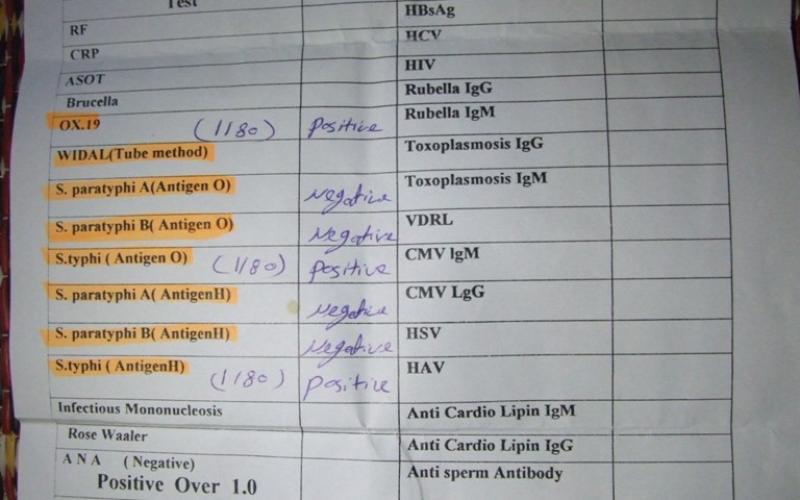 Test
RF
CRP
ASOT
Brucella
OX.19 (1/80) positive
WIDAL(Tube method)
S. paratyphi A(Antigen O) Negative
S. paratyphi B( Antigen O) Negative
S.typhi ( Antigen O) (1/80) positive
S. paratyphi A( AntigenH) Negative
S. paratyphi B( AntigenH) Negative
S.typhi ( AntigenH) (1/80) positive
Infectious Mononucleosis
Rose Waaler
A N A ( Negative)
Positive Over 1.0
HBsAg
HCV
HIV
Rubella IgG
Rubella IgM
Toxoplasmosis IgG
Toxoplasmosis IgM
VDRL
CMV lgM
CMV LgG
HSV
HAV
Anti Cardio Lipin IgM
Anti Cardio Lipin IgG
Anti sperm Antibody